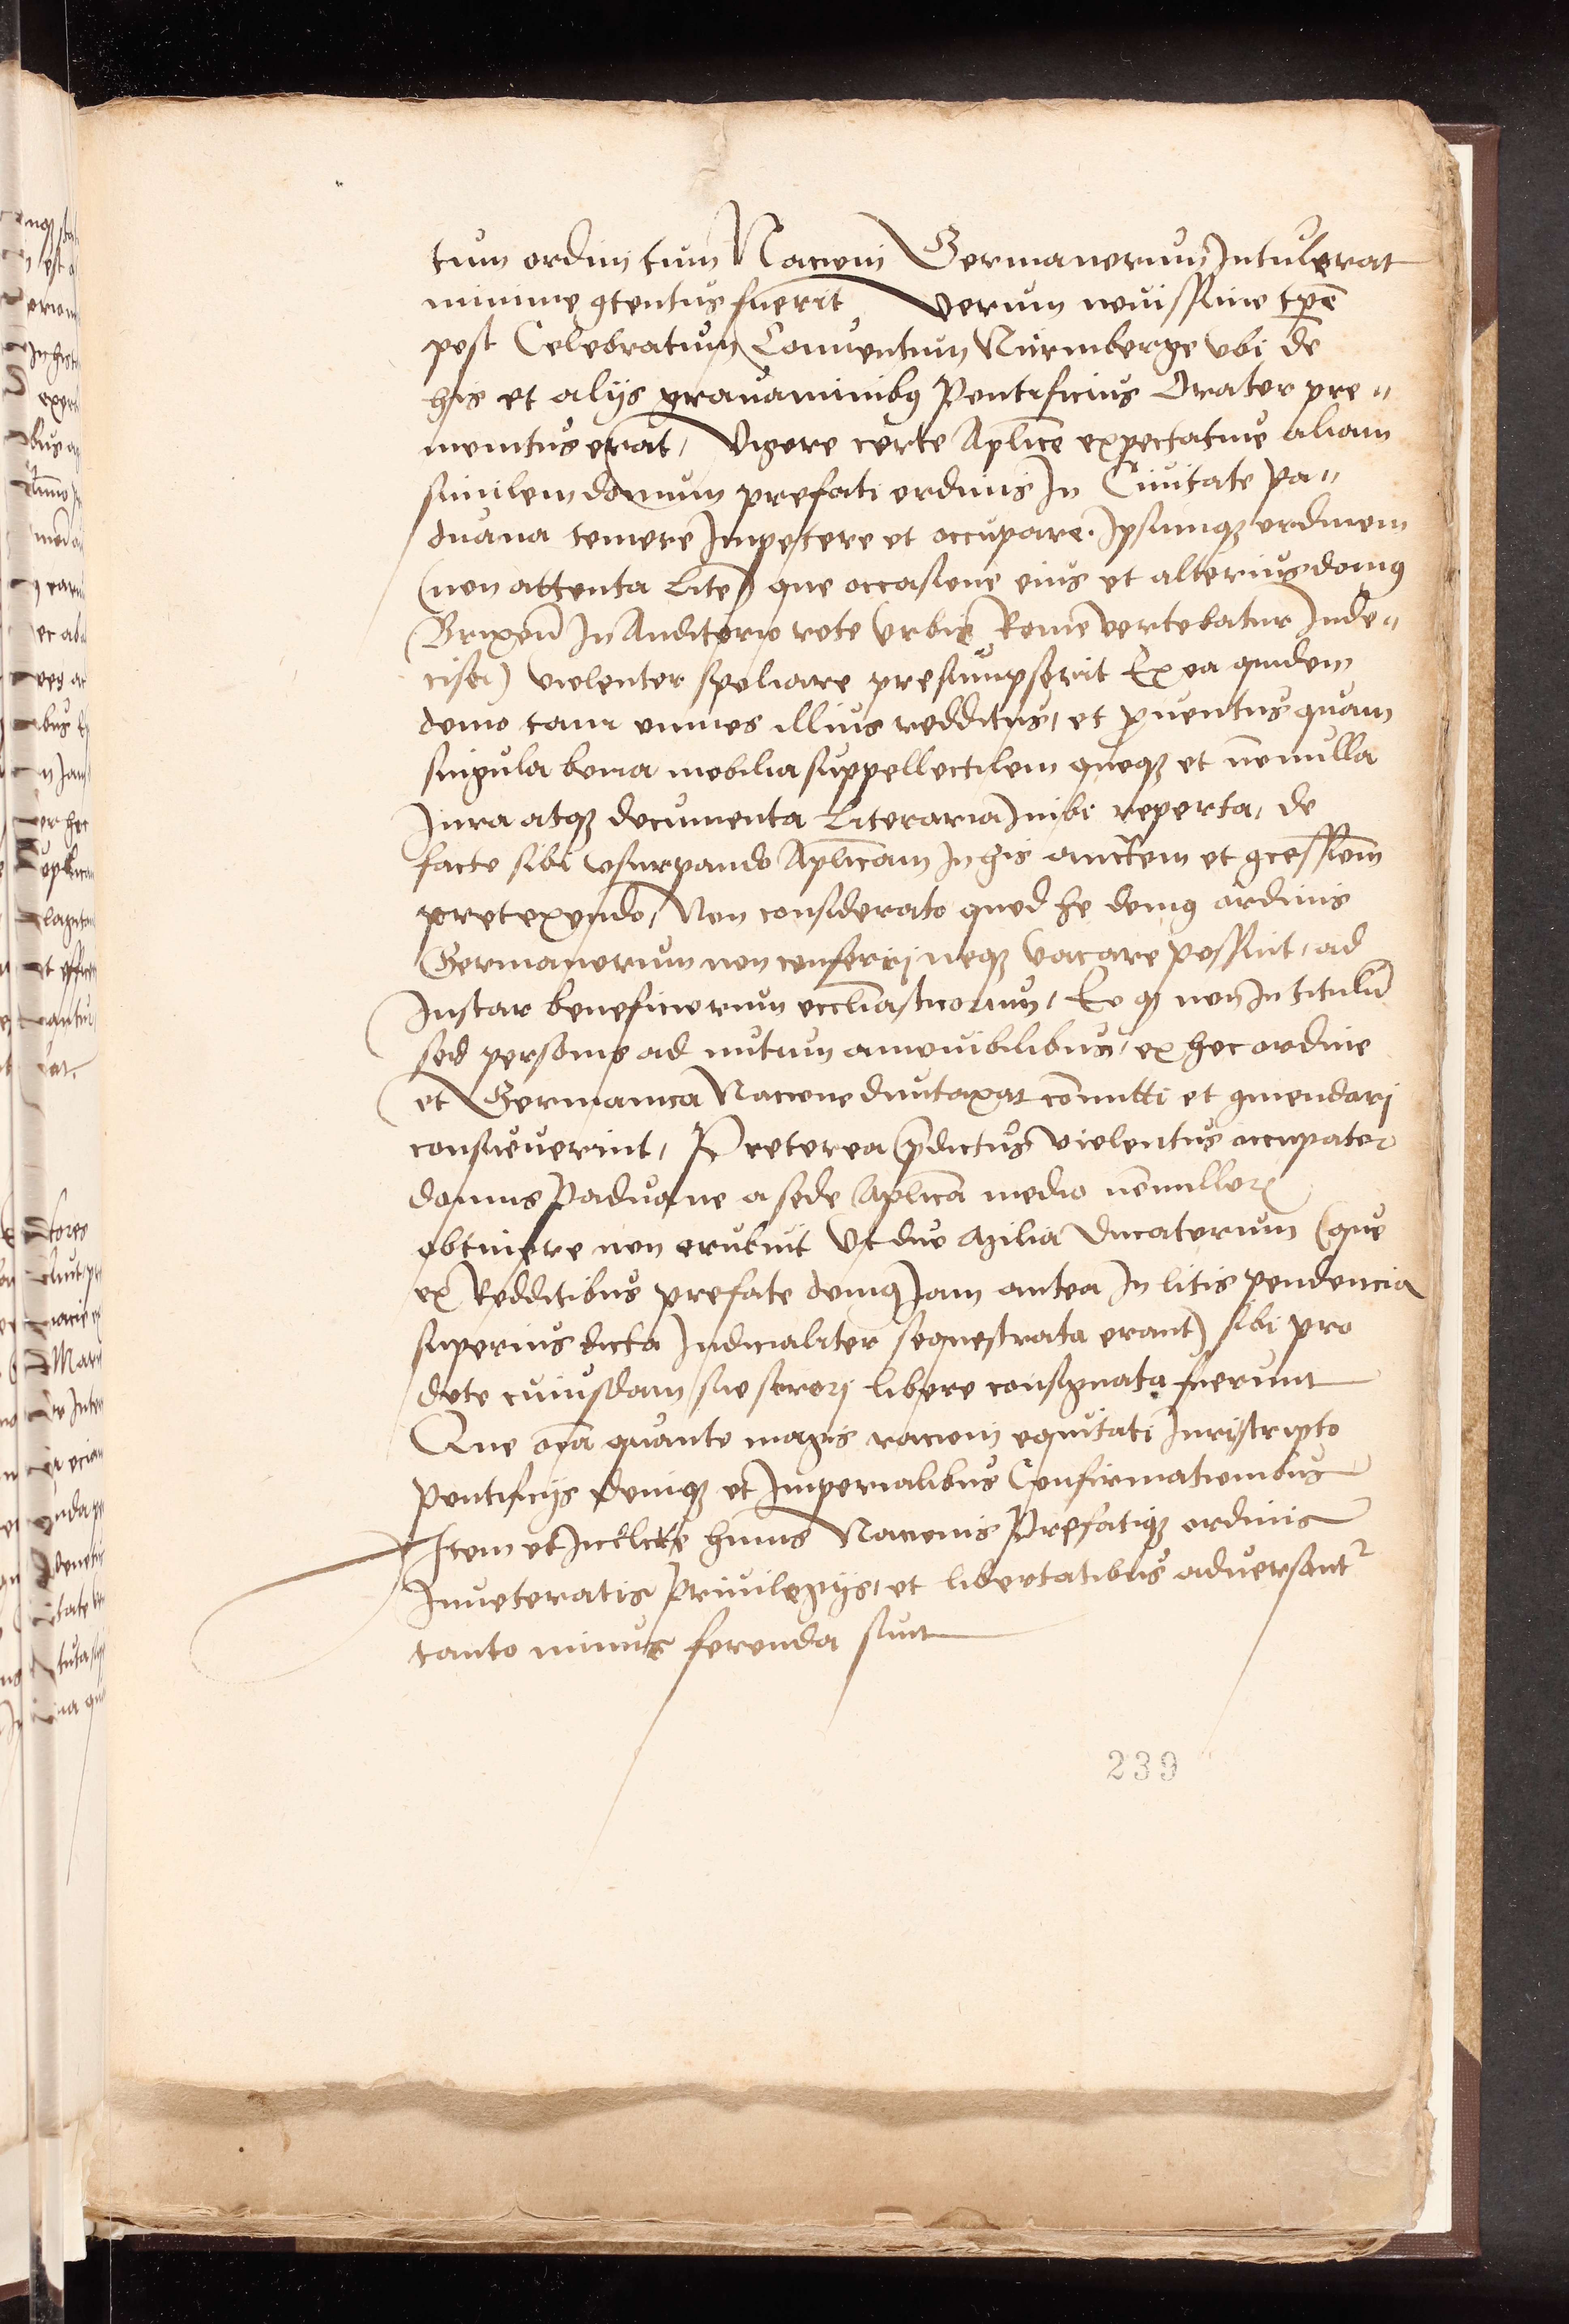 tum ordini tum Nacioni Germanorum Intulerat
minime ꝯtentus fuerit, Verum nouissime tp̄e
post Celebratum Conuentum Nurmberge vbi de
his et alijs grauaminibꝰ Pontificius Orator pre-
monitus erat, Vigore certe Aplice expectatiue aliam
similem domum prefati ordinis In Ciuitate Pa-
duana temere Impetere et occupare. Ipsumqꝫ ordinem
(non attenta Lite) que occasione eius et alterius domꝰ
Brixen̄ In Auditorio rote Vrbis Rome vertebatur Inde-
cisa) violenter spoliare presumpserit Ex ea quidem
domo tam omnes illius redditus, et prouentus quam
singula bona mobilia suppellectilem quoqꝫ et nōnulla
Iura atqꝫ documenta Literaria Inibi reperta, de
facto sibi vsurpando Aplicam In his auctem et ꝯcessionē
pretexendo, Non considerato quod he domꝰ ordinis
Germanorum non conferri neqꝫ vacare possint, ad
Instar beneficiorum eccliasticorum, Eo qꝫ non In titulū
sed personis ad nutum amouibilibus, ex hoc ordine
et Germanica Nacione duntaxat cōmitti et ꝯmendari
consueuerint, Preterea p̄dictus violentus occupator
domus Paduane a sede Aplica medio nōnullorꝫ
obtinere non erubuit Vt duo Milia Ducatorum (que
ex Redditibus prefate domꝰ Iam antea In litis pendencia
superius dicta Iudicialiter sequestrata erant) sibi pro
dote cuiusdam sue sorori libere consignata fuerunt
Que om̄ia quanto magis racioni equitati Iuri scripto
Pontificijs deniqꝫ et Imperialibus Confirmationibus
Item et Inclite huius Nacionis Prefatiqꝫ ordinis
Inueteratis Priuilegijs, et libertatibus aduersant²
tanto minus ferenda sunt
239